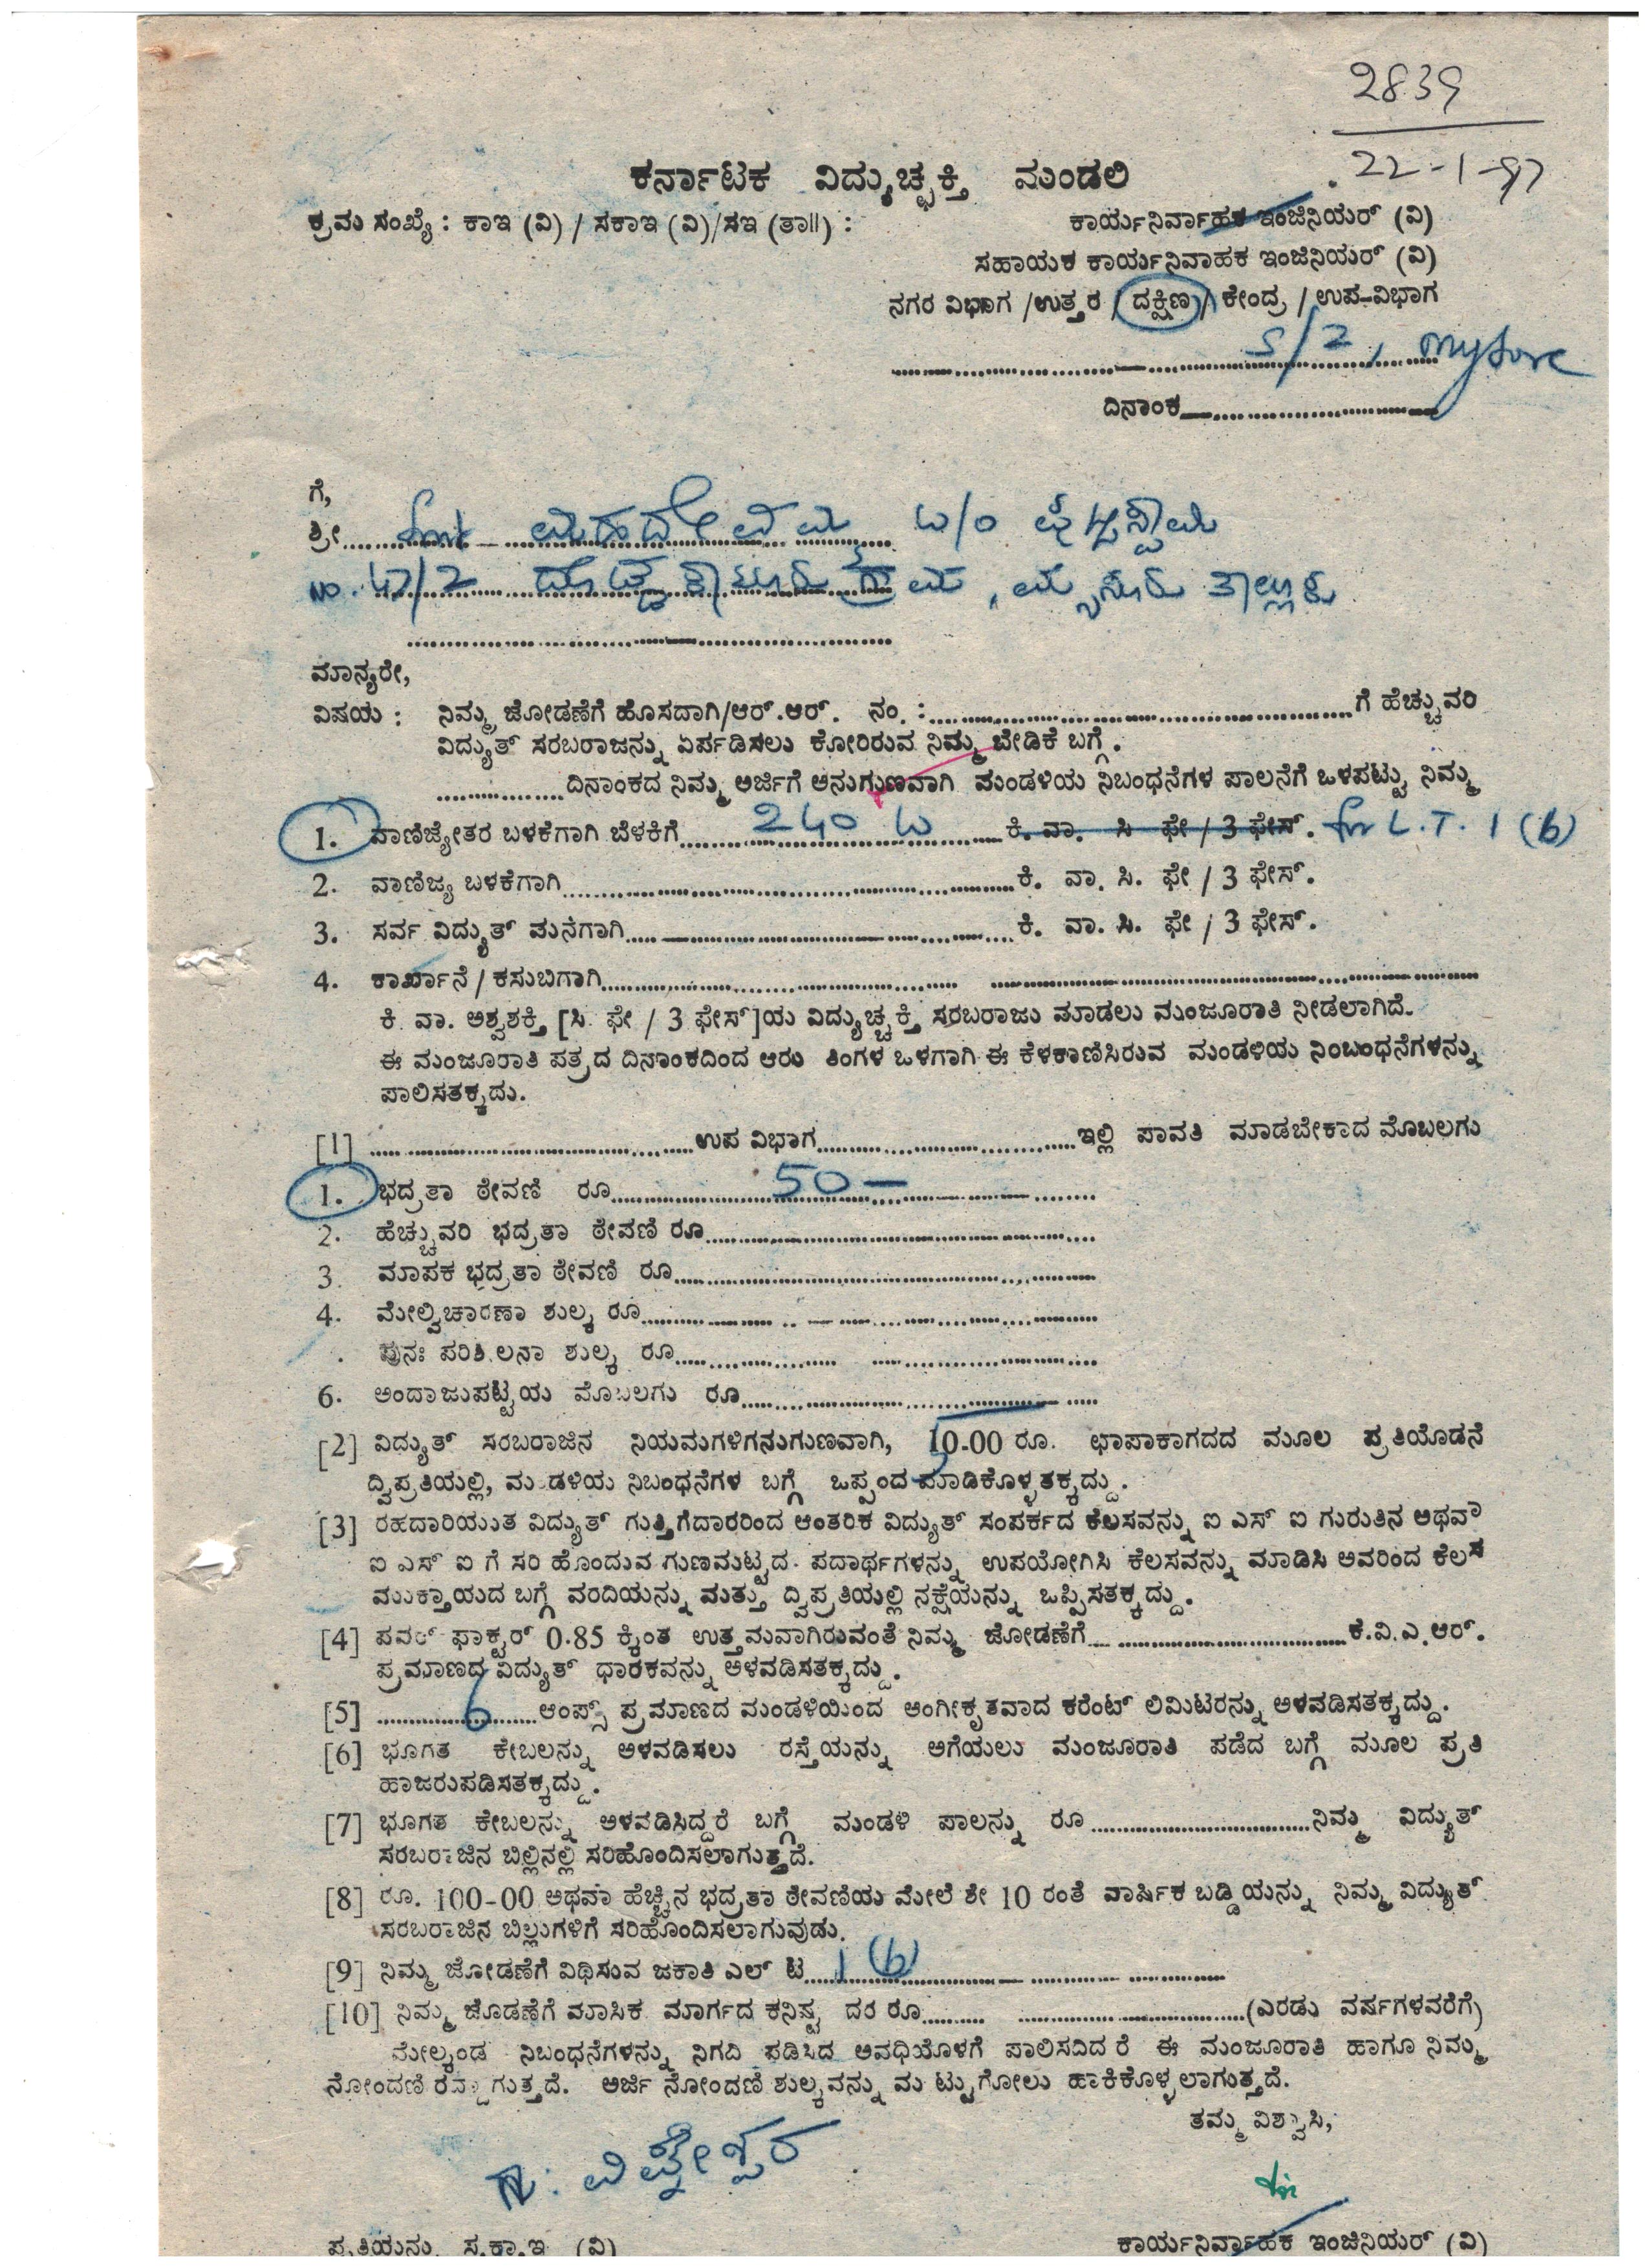 2839
22-1-97
ಕರ್ನಾಟಕ ವಿದ್ಯುಚ್ಛಕ್ತಿ ಮಂಡಲಿ
ಕ್ರಮ ಸಂಖ್ಯೆ : ಕಾಇ (ವಿ) / ಸಕಾಇ (ವಿ)/ಸಇ (ತಾ||) :
ಕಾರ್ಯನಿರ್ವಾಹಕ ಇಂಜಿನಿಯರ್ (ವಿ)
ಸಹಾಯಕ ಕಾರ್ಯನಿವಾಹಕ ಇಂಜಿನಿಯರ್ (ವಿ)
ನಗರ ವಿಭಾಗ /ಉತ್ತರ / ದಕ್ಷಿಣ / ಕೇಂದ್ರ / ಉಪ-ವಿಭಾಗ
S/2, Mysore
ದಿನಾಂಕ
ಗೆ,
ಶ್ರೀ Smt ಮಹದೇವಮ್ಮ w/o
No. 47/2 ಗ್ರಾಮ, ಮೈಸೂರು ತಾಲ್ಲೂಕು
ಮಾನ್ಯರೇ,
ವಿಷಯ : ನಿಮ್ಮ ಜೋಡಣೆಗೆ ಹೊಸದಾಗಿ/ಆರ್.ಆರ್. ನಂ. : ಗೆ ಹೆಚ್ಚುವರಿ
ವಿದ್ಯುತ್ ಸರಬರಾಜನ್ನು ಏರ್ಪಡಿಸಲು ಕೋರಿರುವ ನಿಮ್ಮ ಬೇಡಿಕೆ ಬಗ್ಗೆ.
ದಿನಾಂಕದ ನಿಮ್ಮ ಅರ್ಜಿಗೆ ಅನುಗುಣವಾಗಿ ಮಂಡಳಿಯ ನಿಬಂಧನೆಗಳ ಪಾಲನೆಗೆ ಒಳಪಟ್ಟು ನಿಮ್ಮ
1. ವಾಣಿಜ್ಯೇತರ ಬಳಕೆಗಾಗಿ ಬೆಳಕಿಗೆ 240 W ಕಿ. ವಾ. ಸಿ ಫೇ / 3 ಫೇಸ್. for L.T. 1 (b)
2. ವಾಣಿಜ್ಯ ಬಳಕೆಗಾಗಿ ಕಿ. ವಾ. ಸಿ. ಫೇ / 3 ಫೇಸ್.
3. ಸರ್ವ ವಿದ್ಯುತ್ ಮನೆಗಾಗಿ ಕಿ. ವಾ. ಸಿ. ಫೇ / 3 ಫೇಸ್.
4. ಕಾರ್ಖಾನೆ / ಕಸುಬಿಗಾಗಿ
ಕಿ. ವಾ. ಅಶ್ವಶಕ್ತಿ [ಸಿ. ಫೇ / 3 ಫೇಸ್]ಯ ವಿದ್ಯುಚ್ಚಕ್ತಿ ಸರಬರಾಜು ಮಾಡಲು ಮಂಜೂರಾತಿ ನೀಡಲಾಗಿದೆ.
ಈ ಮಂಜೂರಾತಿ ಪತ್ರದ ದಿನಾಂಕದಿಂದ ಆರು ತಿಂಗಳ ಒಳಗಾಗಿ ಈ ಕೆಳಕಾಣಿಸಿರುವ ಮಂಡಳಿಯ ನಿಂಬಂಧನೆಗಳನ್ನು
ಪಾಲಿಸತಕ್ಕದು.
[1] ಉಪ ವಿಭಾಗ ಇಲ್ಲಿ ಪಾವತಿ ಮಾಡಬೇಕಾದ ಮೊಬಲಗು
1. ಭದ್ರತಾ ಠೇವಣಿ ರೂ 50 —
2. ಹೆಚ್ಚುವರಿ ಭದ್ರತಾ ಠೇವಣಿ ರೂ
3. ಮಾಪಕ ಭದ್ರತಾ ಠೇವಣಿ ರೂ
4. ಮೇಲ್ವಿಚಾರಣಾ ಶುಲ್ಕ ರೂ
. ಪುನಃ ಪರಿಶಿಲನಾ ಶುಲ್ಕ ರೂ
6. ಅಂದಾಜುಪಟ್ಟಿಯ ಮೊಬಲಗು ರೂ
[2] ವಿದ್ಯುತ್ ಸರಬರಾಜಿನ ನಿಯಮಗಳಿಗನುಗುಣವಾಗಿ, 10-00 ರೂ. ಛಾಪಾಕಾಗದದ ಮೂಲ ಪ್ರತಿಯೊಡನೆ
ದ್ವಿಪ್ರತಿಯಲ್ಲಿ, ಮಂಡಳಿಯ ನಿಬಂಧನೆಗಳ ಬಗ್ಗೆ ಒಪ್ಪಂದ ಮಾಡಿಕೊಳ್ಳತಕ್ಕದ್ದು.
[3] ರಹದಾರಿಯುತ ವಿದ್ಯುತ್ ಗುತ್ತಿಗೆದಾರರಿಂದ ಆಂತರಿಕ ವಿದ್ಯುತ್ ಸಂಪರ್ಕದ ಕೆಲಸವನ್ನು ಐ ಎಸ್ ಐ ಗುರುತಿನ ಅಥವಾ
ಐ ಎಸ್ ಐ ಗೆ ಸರಿ ಹೊಂದುವ ಗುಣಮಟ್ಟದ. ಪದಾರ್ಥಗಳನ್ನು ಉಪಯೋಗಿಸಿ ಕೆಲಸವನ್ನು ಮಾಡಿಸಿ ಅವರಿಂದ ಕೆಲಸ
ಮುಕ್ತಾಯದ ಬಗ್ಗೆ ವರದಿಯನ್ನು ಮತ್ತು ದ್ವಿಪ್ರತಿಯಲ್ಲಿ ನಕ್ಷೆಯನ್ನು ಒಪ್ಪಿಸತಕ್ಕದ್ದು.
[4] ಪವರ್ ಫಾಕ್ಟರ್ 0.85 ಕ್ಕಿಂತ ಉತ್ತಮವಾಗಿರುವಂತೆ ನಿಮ್ಮ ಜೋಡಣೆಗೆ ಕೆ.ವಿ.ಎ.ಆರ್.
ಪ್ರಮಾಣದ ವಿದ್ಯುತ್ ಧಾರಕವನ್ನು ಅಳವಡಿಸತಕ್ಕದ್ದು.
[5] 6 ಆಂಪ್ಸ್ ಪ್ರಮಾಣದ ಮಂಡಳಿಯಿಂದ ಅಂಗೀಕೃತವಾದ ಕರೆಂಟ್ ಲಿಮಿಟರನ್ನು ಅಳವಡಿಸತಕ್ಕದ್ದು.
[6] ಭೂಗತ ಕೇಬಲನ್ನು ಅಳವಡಿಸಲು ರಸ್ತೆಯನ್ನು ಅಗೆಯಲು ಮಂಜೂರಾತಿ ಪಡೆದ ಬಗ್ಗೆ ಮೂಲ ಪ್ರತಿ
ಹಾಜರುಪಡಿಸತಕ್ಕದ್ದು.
[7] ಭೂಗತ ಕೇಬಲನ್ನು ಅಳವಡಿಸಿದ್ದರೆ ಬಗ್ಗೆ ಮಂಡಳಿ ಪಾಲನ್ನು ರೂ ನಿಮ್ಮ ವಿದ್ಯುತ್
ಸರಬರಾಜಿನ ಬಿಲ್ಲಿನಲ್ಲಿ ಸರಿಹೊಂದಿಸಲಾಗುತ್ತದೆ.
[8] ರೂ. 100-00 ಅಥವಾ ಹೆಚ್ಚಿನ ಭದ್ರತಾ ಠೇವಣಿಯ ಮೇಲೆ ಶೇ 10 ರಂತೆ ವಾರ್ಷಿಕ ಬಡ್ಡಿಯನ್ನು ನಿಮ್ಮ ವಿದ್ಯುತ್
ಸರಬರಾಜಿನ ಬಿಲ್ಲುಗಳಿಗೆ ಸರಿಹೊಂದಿಸಲಾಗುವುಡು.
[9] ನಿಮ್ಮ ಜೋಡಣೆಗೆ ವಿಧಿಸುವ ಜಕಾತಿ ಎಲ್ ಟಿ 1 (b)
[10] ನಿಮ್ಮ ಜೊಡಣೆಗೆ ಮಾಸಿಕ ಮಾರ್ಗದ ಕನಿಷ್ಟ ದರ ರೂ (ಎರಡು ವರ್ಷಗಳವರೆಗೆ)
ಮೇಲ್ಕಂಡ ನಿಬಂಧನೆಗಳನ್ನು ನಿಗದಿ ಪಡಿಸಿದ ಅವಧಿಯೊಳಗೆ ಪಾಲಿಸದಿದರೆ ಈ ಮಂಜೂರಾತಿ ಹಾಗೂ ನಿಮ್ಮ
ನೋಂದಣಿ ರದ್ದಾಗುತ್ತದೆ. ಅರ್ಜಿ ನೋಂದಣಿ ಶುಲ್ಕವನ್ನು ಮುಟ್ಟುಗೋಲು ಹಾಕಿಕೊಳ್ಳಲಾಗುತ್ತದೆ.
ತಮ್ಮ ವಿಶ್ವಾಸಿ,
ವಿಘ್ನೇಶ್ವರ
ಪ್ರತಿಯನ್ನು ಸ.ಕಾ.ಇ (ವಿ)
ಕಾರ್ಯನಿರ್ವಾಹಕ ಇಂಜಿನಿಯರ್ (ವಿ)